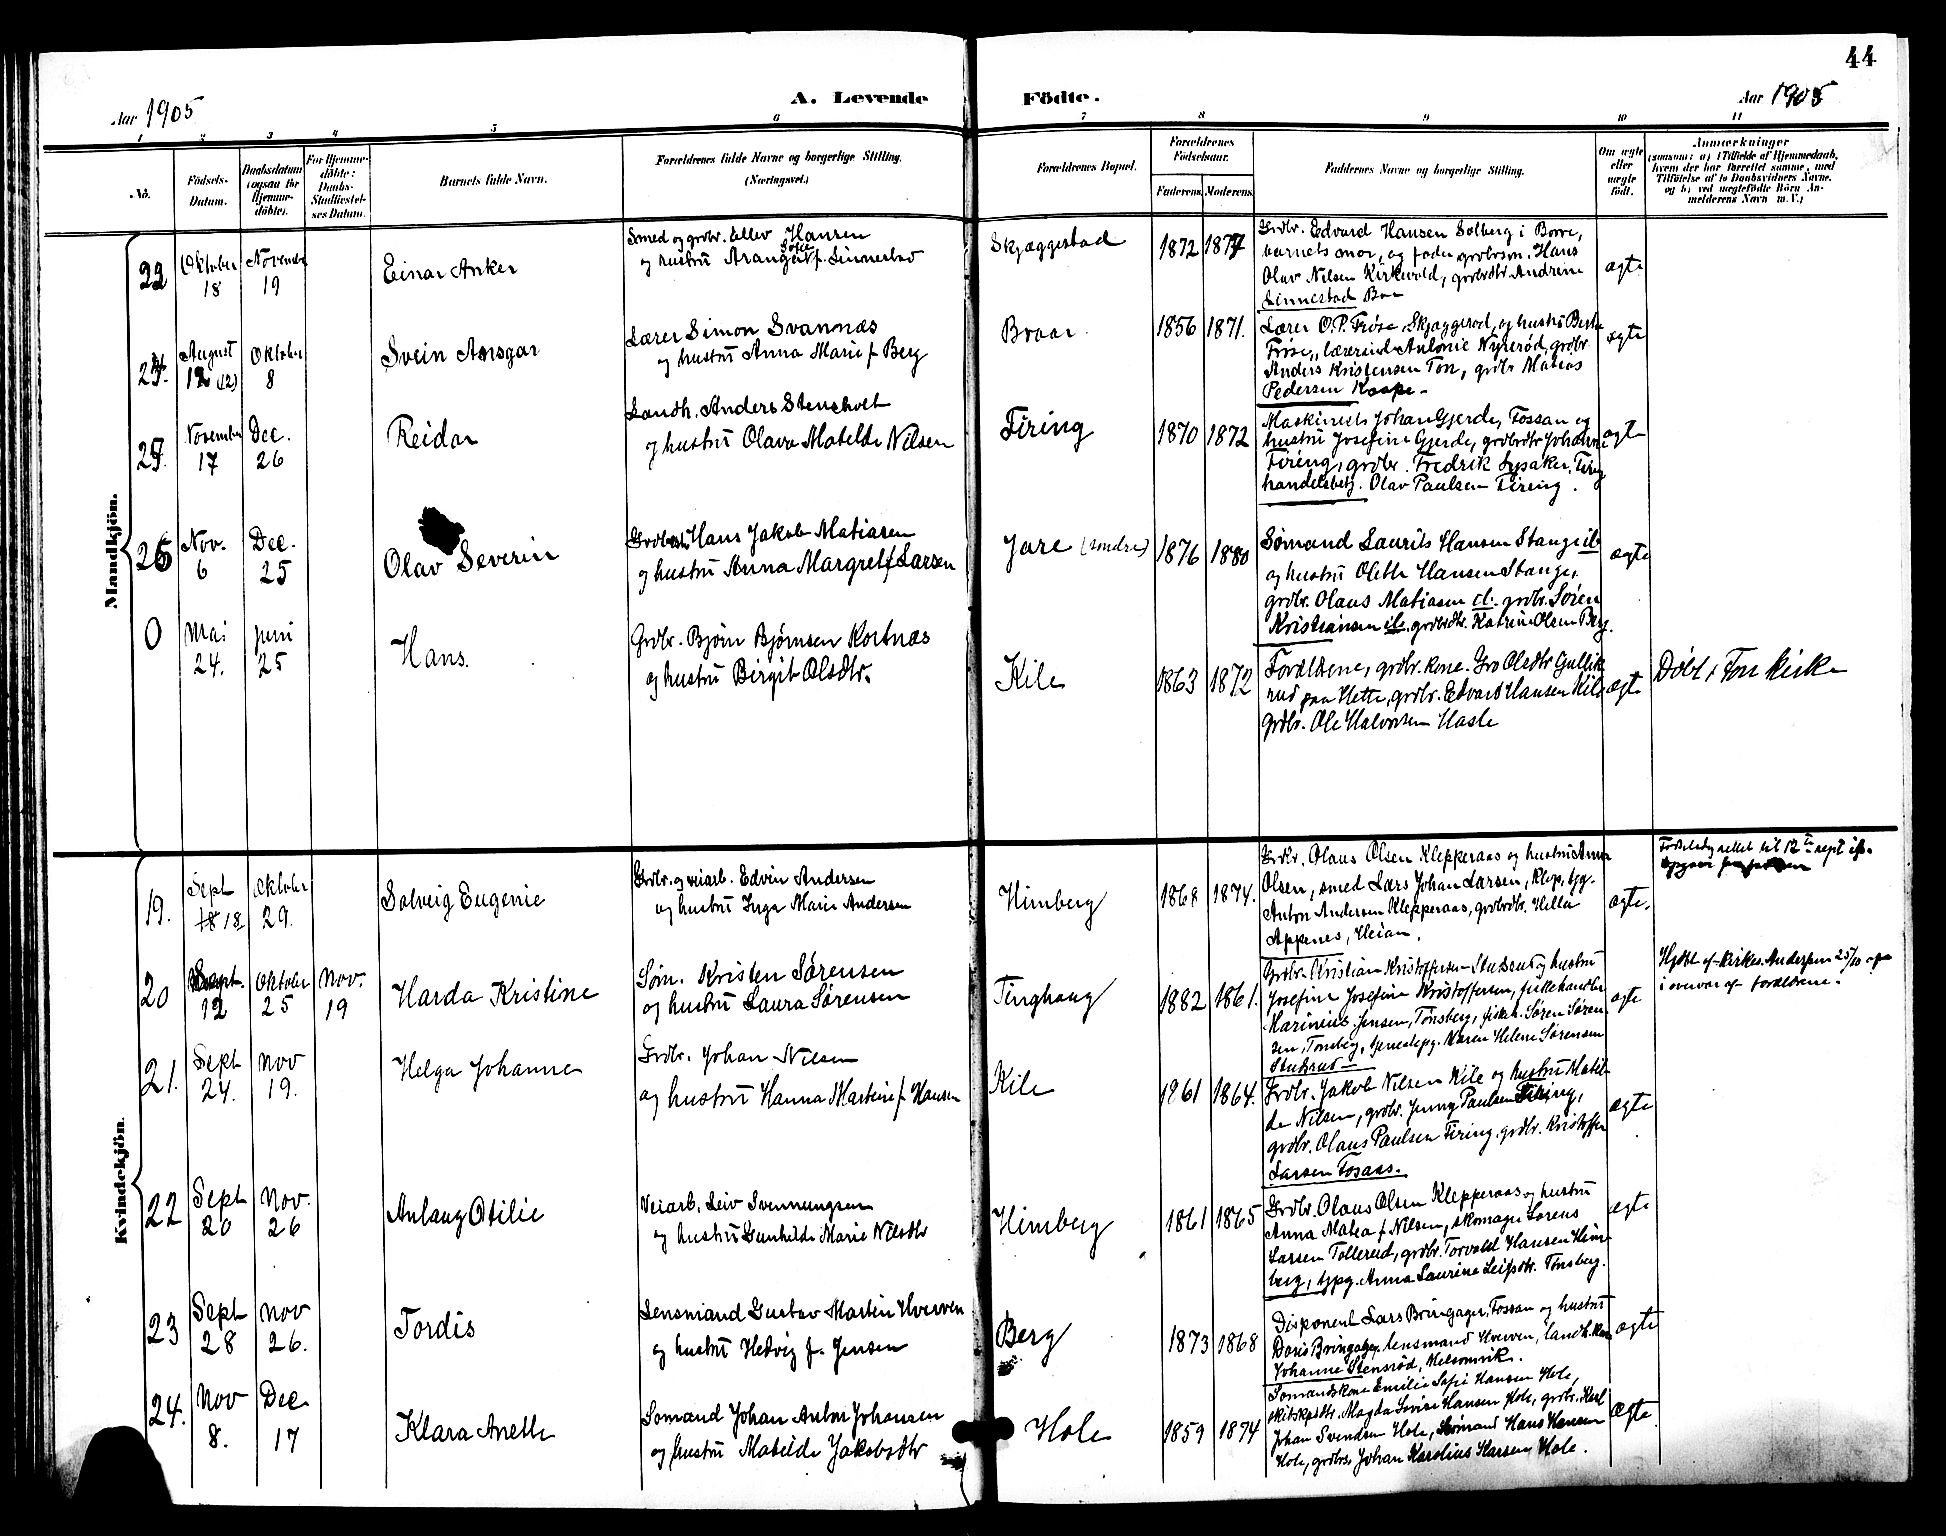 44
Aar 1905
A. Levende Födte.
Aar 1905
1 2 3 4 5 6 7 8 9 10 11
No.
Födsels-
Datum.
Daabsdatum
(ogsaa for
Hjemme-
döbte).
For Hjemme-
döbte:
Daabs-
Stadfæstel-
ses Datum.
Barnets fulde Navn.
Forældrenes fulde Navne og borgerlige Stilling.
(Næringsvei.)
Forældrenes Bopæl.
Forældrenes
Födselsaar.
Faderens. Moderens.
Faddernes Navne og borgerlige Stilling.
Om ægte
eller
uægte
født.
Anmærkninger
(saasom: a) i Tilfælde af Hjemmedaab,
hvem der har forrettet samme, med
Tilföielse af to Daabsvidners Navne,
og b) ved uægtefödte Börn An-
melderens Navn m. V.)
Mandkjön.
22
Oktober
18
November
19
Einar Anker
Smed og grdbr. Ellev Hansen
og hustru Aranget Sofie f. Linnestad
Skjæggestad
1872 1877
Grdbr. Edvard Hansen Solberg i Borre,
barnets mor, og fader, grdbrsøn. Hans
Olav Nilsen Kirkevold, grdbrdtr Andrine
Linnestad
ægte
August
12 (12)
Oktober
8
Svein Ansgar
Lærer Simon Svannæs
og hustru Anna Marie f. Berg
Braar
1856 1871.
Lærer O.P. Frøse, Skjæggerød, og hustru
Frøse, lærerind Antonie Nyrerød, grdbr
Anders Kristensen Ton, grdbr Matias
Pedersen Kaape
ægte
November
17
Dec.
26
Reidar
Landh. Anders Stensholt
og hustru Olava Matilde Nilsen
Firing
1870 1872
Maskinist Johan Gjerde, Fossan og
hustru Josefine Gjerde, grdbrdtr Johanne
Firing, grdbr. Fredrik Lysaker, Firing
handelsbetj. Olav Paulsen Firing.
ægte
Nov.
6
Dec.
25
Olav Severin
Hans Jakob Matiasen
og hustru Anna Margret f Larsen
Jare (søndre)
1876 1880
Sømand Laurits Hansen Stange ib
og hustru Olette Hansen Stange,
grdbr. Olaus Matiasen ib. grdbr. Søren
Kristiansen ib, grdbrdtr. Katrine Olsen Berg.
ægte
0
Mai
24.
Juni
25
Hans.
Grdbr. Bjørn Bjørnsen Kortnæs
og hustru Birgit Olsdtr.
Kile
1863 1872
Forældrene, grdbr. kone. Gro Olsdtr Gullik
rud paa Hette, grdbr. Edvard Hansen Kile
grdbr. Ole Halvorsen Hasle
ægte
Døbt i Fon kirke
Kvindekjön.
19.
Sept
18
Oktober
29.
Solveig Eugenie
Grdbr. og veiarb. Edvin Andersen
og hustru Inga Marie Andersen
Himberg
1868 1874.
Grdbr. Olaus Olsen Klepperaas og hustru Anna
Olsen, smed Lars Johan Larsen, Klep, tjg.
Anton Andersen Klepperaas, grdbrdtr. Hella
Appenes, Heian.
ægte.
til 12te sept
20
Sept.
12
Oktober
25
Nov.
19
Harda Kristine
Søm. Kristen Sørensen
og hustru Laura Sørensen
Tinghaug
1882 1861.
Grdbr. Kristian Kristoffersen Stubsrud og hustru
Josefine Josefine Kristoffersen, fiskehandler
Marinius Jensen, Tønsberg, fiskh. Søren Søren
sen, Tønsberg, tjenestepg. Karen Helene Sørensen
Stubsrud
ægte
Hjdbt af kirkes. Andersen 25/10
i overvær af forældrene.
21.
Sept
24.
Nov
19.
Helga Johanne
Grdbr. Johan Nilsen
og hustru Hanna Martine f. Hansen
Kile
1861 1864.
Grdbr. Jakob Nilsen Kile og hustru Matil-
de Nilsen, grdbr. Jenny Paulsen Firing,
grdbr. Olaus Paulsen Firing. grdbr. Kristoffer
Larsen Fosaas.
ægte
22
Sept
20
Nov.
26
Aslaug Otilie
Veiarb. Leiv Svennungsen
og hustru Gunhilde Marie Nilsdtr
Himberg
1861 1865
Grdbr. Olaus Olsen Klepperaas og hustru
Anna Matea f Nilsen, skomager Lorens
Larsen Tollerud, grdbr. Torvald Hansen Him
berg, tjpg. Anna Laurine Leifsdtr. Tønsberg.
ægte
23
Sept
28
Nov
26.
Tordis
Lensmand Gustav Martin Hverven
og hustru Hedvig f. Jensen
Berg
1873 1868
Disponent Lars Bringager, Fossan og hustru
Doris Bringager, lensmand Hverven, landh.
Johanne Stensrød, Melsomvik.
ægte
24.
Nov
8.
Dec
17
Klara Anette
Sømand Johan Anton Johansen
og hustru Matilde Jakobsdtr
Hole
1859 1874
Sømandskone Emilie Sofie Hansen Hole,
skibskpdtr. Magda Lovise Hansen Hole, grdbr. Karl
Johan Svendsen Hole, Sømand Hans Hansen
Hole, grdbrs. Johan Karolius Hansen Hole.
ægte